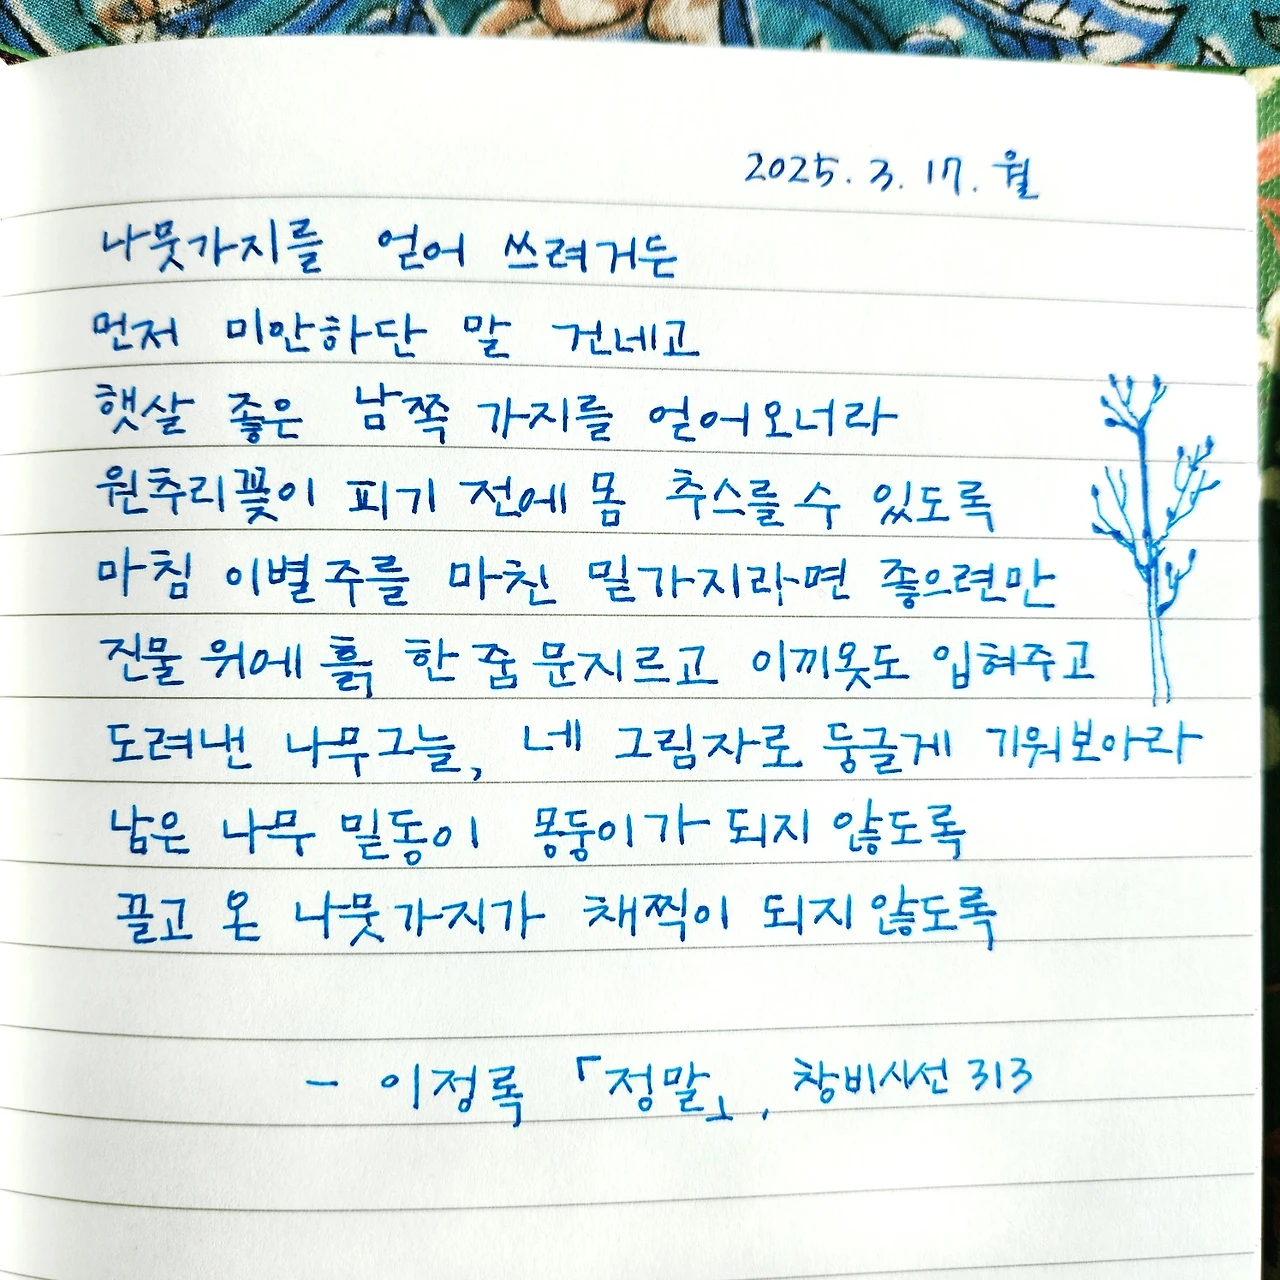 2025. 3. 17. 월
나뭇가지를 얻어 쓰려거든
먼저 미안하단 말 건네고
햇살 좋은 남쪽 가지를 얻어오너라
원추리꽃이 피기 전에 몸 추스를 수 있도록
마침 이별주를 마친 밑가지라면 좋으련만
진물 위에 흙 한 줌 문지르고 이끼옷도 입혀주고
도려낸 나무그늘, 네 그림자로 둥글게 기워보아라
남은 나무 밑동이 몽둥이가 되지 않도록
끌고 온 나뭇가지가 채찍이 되지 않도록
- 이정록 「정말」, 창비시선 313